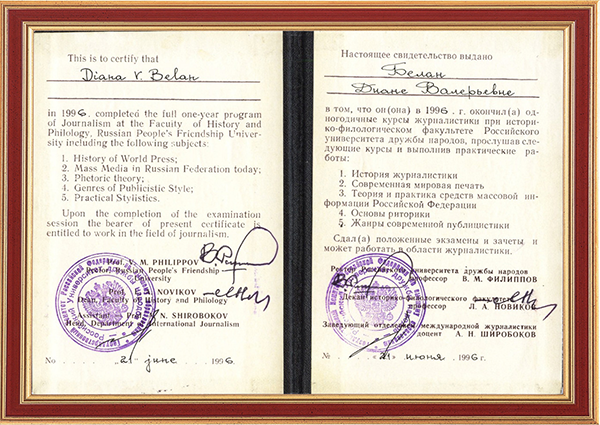 This is to certify that
Diana V. Belan
in 1996. completed the full one-year program
of Journalism at the Faculty of History and
Philology, Russian People's Friendship Univer-
sity including the following subjects:
1. History of World Press;
2. Mass Media in Russian Federation today;
3. Phetoric theory;
4. Genres of Publicistic Style;
5. Practical Stylistics.
Upon the completion of the examination
session the bearer of present certificate is
entitled to work in the field of journalism.
V. M. PHILIPPOV
Prof. Russian People's Friendship
University
Prof. NOVIKOV
Dean, Faculty of History and Philology
Assistant N. SHIROBOKOV
Head, Department of International Journalism
No 21 june 1996.
Настоящее свидетельство выдано
Белан
Диане Валерьевне
в том, что он(она) в 1996. г. окончил(а) од-
ногодичные курсы журналистики при истори-
ко-филологическом факультете Российского
университета дружбы народов, прослушав сле-
дующие курсы и выполнив практические ра-
боты:
1. История журналистики
2. Современная мировая печать
3. Теория и практика средств массовой ин-
формации Российской Федерации
4. Основы риторики
5. Жанры современной публицистики
Сдал(а) положенные экзамены и зачеты и
может работать в области журналистики.
Ректор университета дружбы народов
профессор В. М. ФИЛИППОВ
Декан историко-филологического
профессор Л. А. НОВИКОВ
Заведующий отделением международной журналистики
доцент А. Н. ШИРОБОКОВ
№ «21» июня 1996 г.